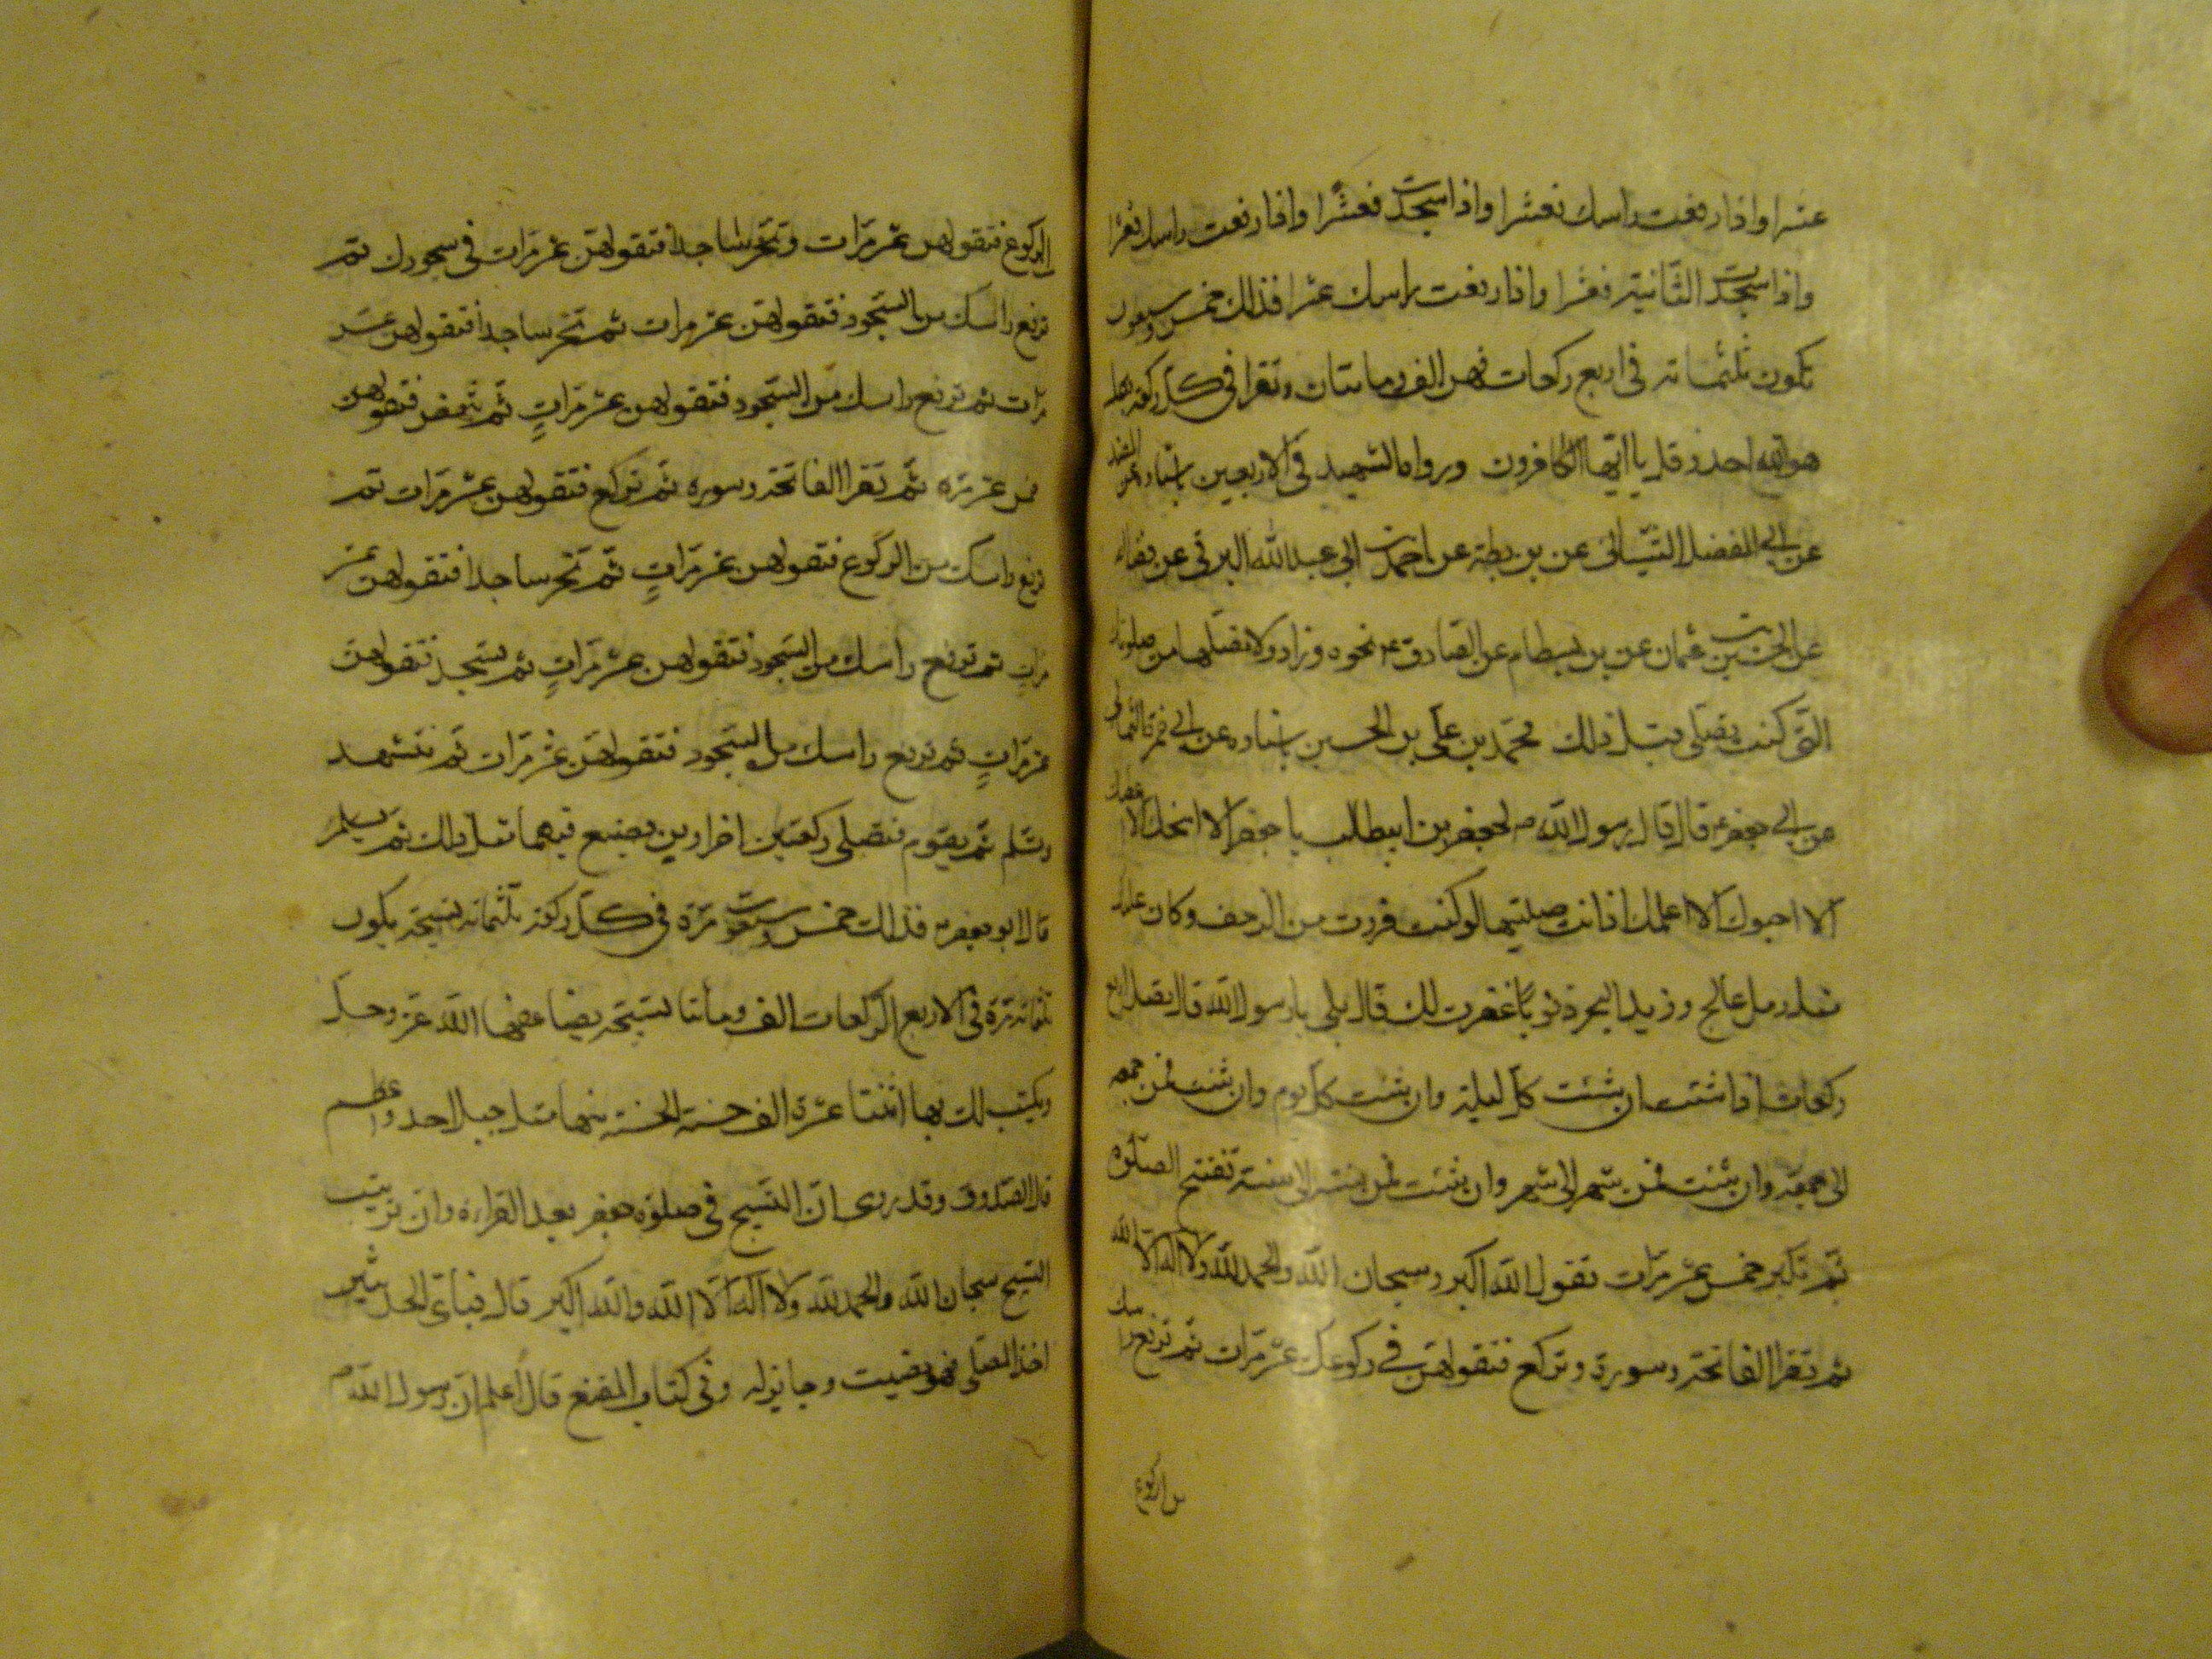 عشرا واذا رفعت راسك فعشرا واذا سجدت فعشرا واذا رفعت راسك فعشرا
واذا سجدت الثانية فعشرا واذا رفعت راسك عشرا فذلك خمس وسبعون
تكون ثلثمائه فى اربع ركعات فهن الف وماستان وتقرا فى كل ركعة بقل
هو الله احد وقل يا ايها الكافرون ورواه الشهيد فى الاربعين باسناده
عن ابى المفضل الشيبانى عن بن بطة عن احمد بن ابى عبد الله البرقى عن
عن الحسين بن عثمان عن بن بسطام عن الصادق ع نحوه وزاد ولا تصلها من صلوتك
التى كنت تصلى قبل ذلك محمد بن على بن الحسين باسناده عن ابى حمزة الثمالى
عن ابى جعفر ع قال قال رسول الله ص لجعفر بن ابيطالب يا جعفر الا امنحك الا اعطيك
الا احبوك الا اعلمك اذا انت صليتها لو كنت فررت من الزحف وكان عليك
مثل رمل عالج وزبد البحر ذنوبا غفرت لك قال بلى يا رسول الله قال تصلى اربع
ركعات اذا شئت ان شئت كل ليلة وان شئت كل يوم وان شئت فمن جمعه
الى جمعة وان شئت فمن شهر الى شهر وان شئت فمن سنة الى سنة تفتتح الصلوة
ثم تكبر خمس عشر مرات تقول الله اكبر وسبحان الله والحمد لله ولا اله الا الله
ثم تقرا الفاتحة وسورة وتركع فتقولهن فى ركوعك عشر مرات ثم ترفع راسك
من الركوع
الركوع فتقولهن عشر مرات وتخر ساجدا فتقولهن عشر مرات فى سجودك ثم
ترفع راسك من السجود فتقولهن عشر مرات ثم تخر ساجدا فتقولهن عشر
مرات ثم ترفع راسك من السجود فتقولهن عشر مرات ثم تنهض فتقولهن
خمس عشر مرة ثم تقرا الفاتحة وسوره ثم تركع فتقولهن عشر مرات ثم
ترفع راسك من الركوع فتقولهن عشر مرات ثم تخر ساجدا فتقولهن عشر
مرات ثم ترفع راسك من السجود فتقولهن عشر مرات ثم تسجد فتقولهن
عشر مرات ثم ترفع راسك من السجود فتقولهن عشر مرات ثم تتشهد
وتسلم ثم يقوم فتصلى ركعتين اخراوين تصنع فيهما مثل ذلك ثم تسلم
قال ابو جعفر ع فذلك خمس وسبعون مرة فى كل ركعة ثلثمائه تسبيحة يكون
ثلثمائه مرة فى الاربع الركعات الف ومأتا تسبيحة يضاعفها الله عز وجل
ويكتب لك بها اثنتا عشرة الف حسنة الحسنة منها مثل جبل احد واعظم
قال الصدوق وقد روى ان التسبيح فى صلوة جعفر بعد القراءة وان ترتيب
التسبيح سبحان الله والحمد لله ولا اله الا الله والله اكبر قال فباى الحديثين
اخذ المصلى فهو مصيب وجايز له وفى كتاب المقنع قال اعلم ان رسول الله ص